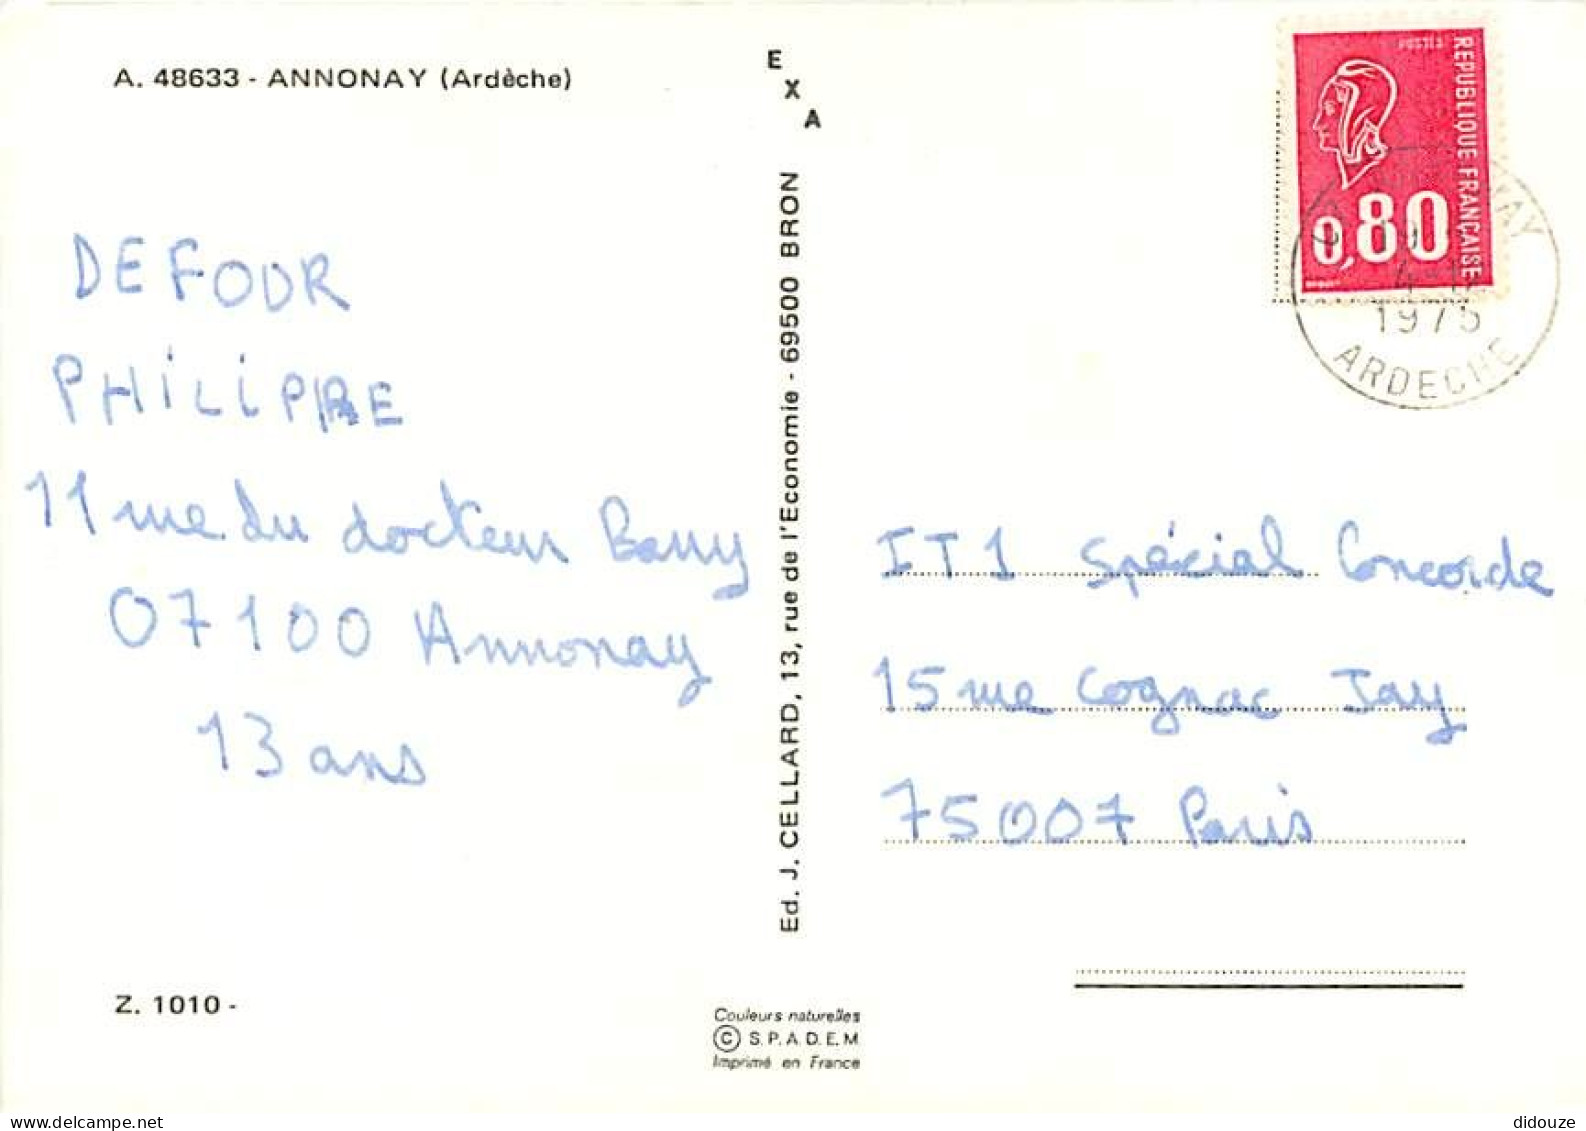 A. 48633 - ANNONAY (Ardèche)
E
X
A
POSTES
REPUBLIQUE FRANÇAISE
0,80
1975
ARDECHE
DEFOUR
PHiLiPPE
11 rue du docteur Barry
07100 Annonay
13 ans
Ed. J. CELLARD, 13, rue de l'Economie - 69500 BRON
IT1 Spécial Concorde
15 rue Cognac Jay
75007 Paris
Z. 1010 -
Couleurs naturelles
© S.P.A.D.E.M
Imprimé en France
didouze